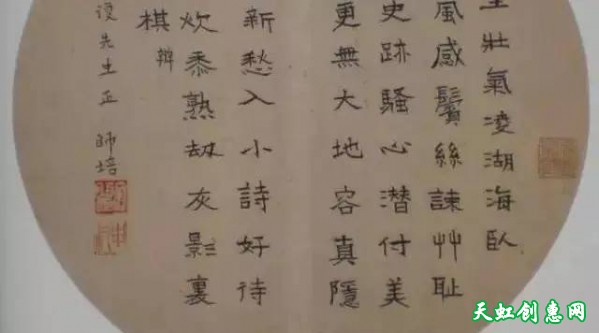 壯氣凌湖海臥
風感鬢絲諫艸恥
史跡騷心潛付美
更無大地容真隱
新愁入小詩好待
炊黍熟劫灰影裏
棋辯
先生正 師培
天虹创惠网